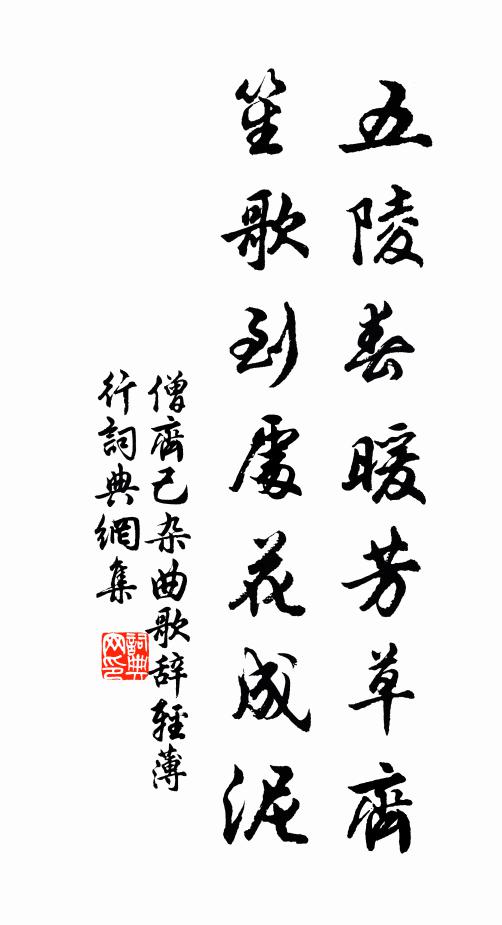 五陵春暖芳草齊
笙歌到處花成泥
僧齊己杂曲歌辞輕薄
行詞典網集
詞典网印